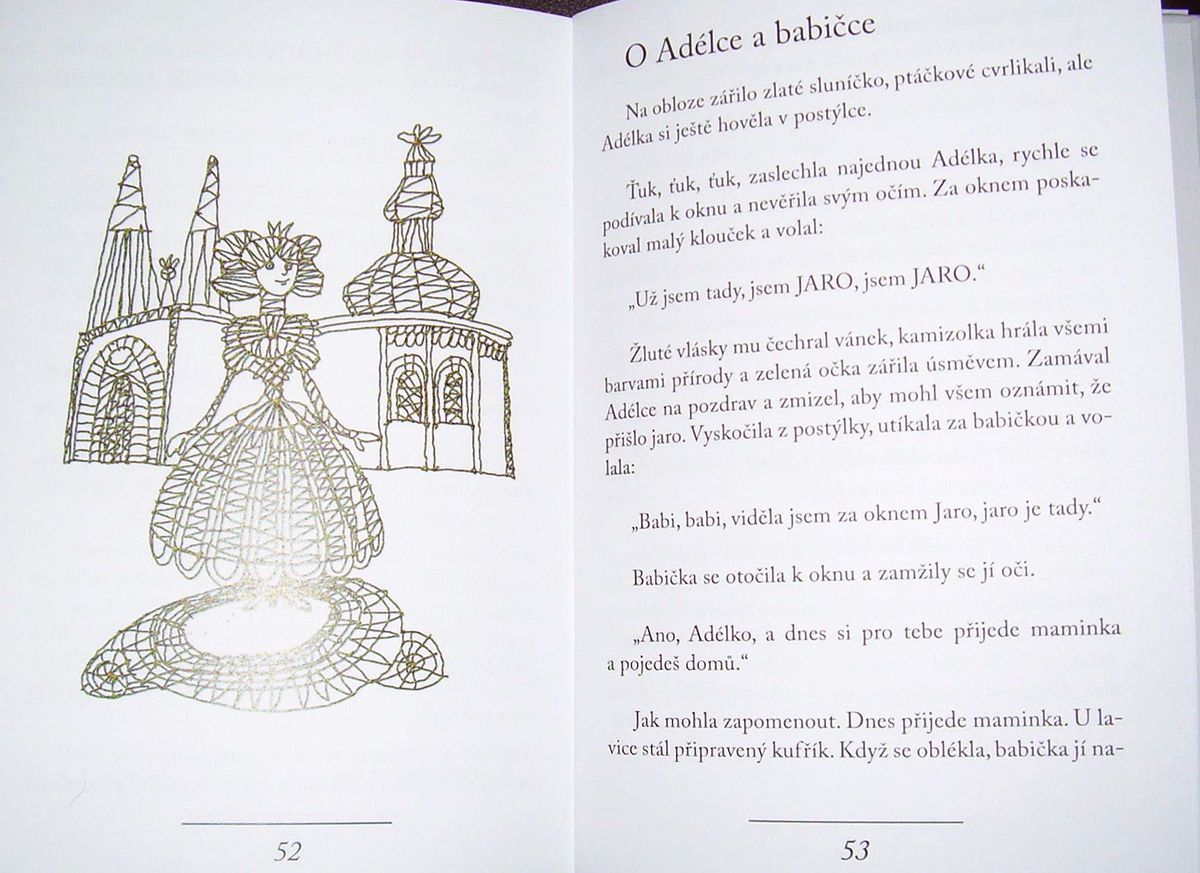 52
O Adélce a babičce
Na obloze zářilo zlaté sluníčko, ptáčkové cvrlikali, ale
Adélka si ještě hověla v postýlce.
Ťuk, ťuk, ťuk, zaslechla najednou Adélka, rychle se
podívala k oknu a nevěřila svým očím. Za oknem poska-
koval malý klouček a volal:
„Už jsem tady, jsem JARO, jsem JARO.“
Žluté vlásky mu čechral vánek, kamizolka hrála všemi
barvami přírody a zelená očka zářila úsměvem. Zamával
Adélce na pozdrav a zmizel, aby mohl všem oznámit, že
přišlo jaro. Vyskočila z postýlky, utíkala za babičkou a vo-
lala:
„Babi, babi, viděla jsem za oknem Jaro, jaro je tady.“
Babička se otočila k oknu a zamžily se jí oči.
„Ano, Adélko, a dnes si pro tebe přijede maminka
a pojedeš domů.“
Jak mohla zapomenout. Dnes přijede maminka. U la-
vice stál připravený kufřík. Když se oblékla, babička jí na-
53